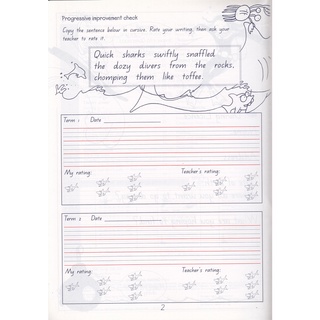 Progressive improvement check
Copy the sentence below in cursive. Rate your writing, then ask your
teacher to rate it.
Quick sharks swiftly snaffled
the dozy divers from the rocks,
chomping them like toffee.
Term 1 Date
My rating: Teacher's rating:
Term 2 Date
My rating: Teacher's rating:
2